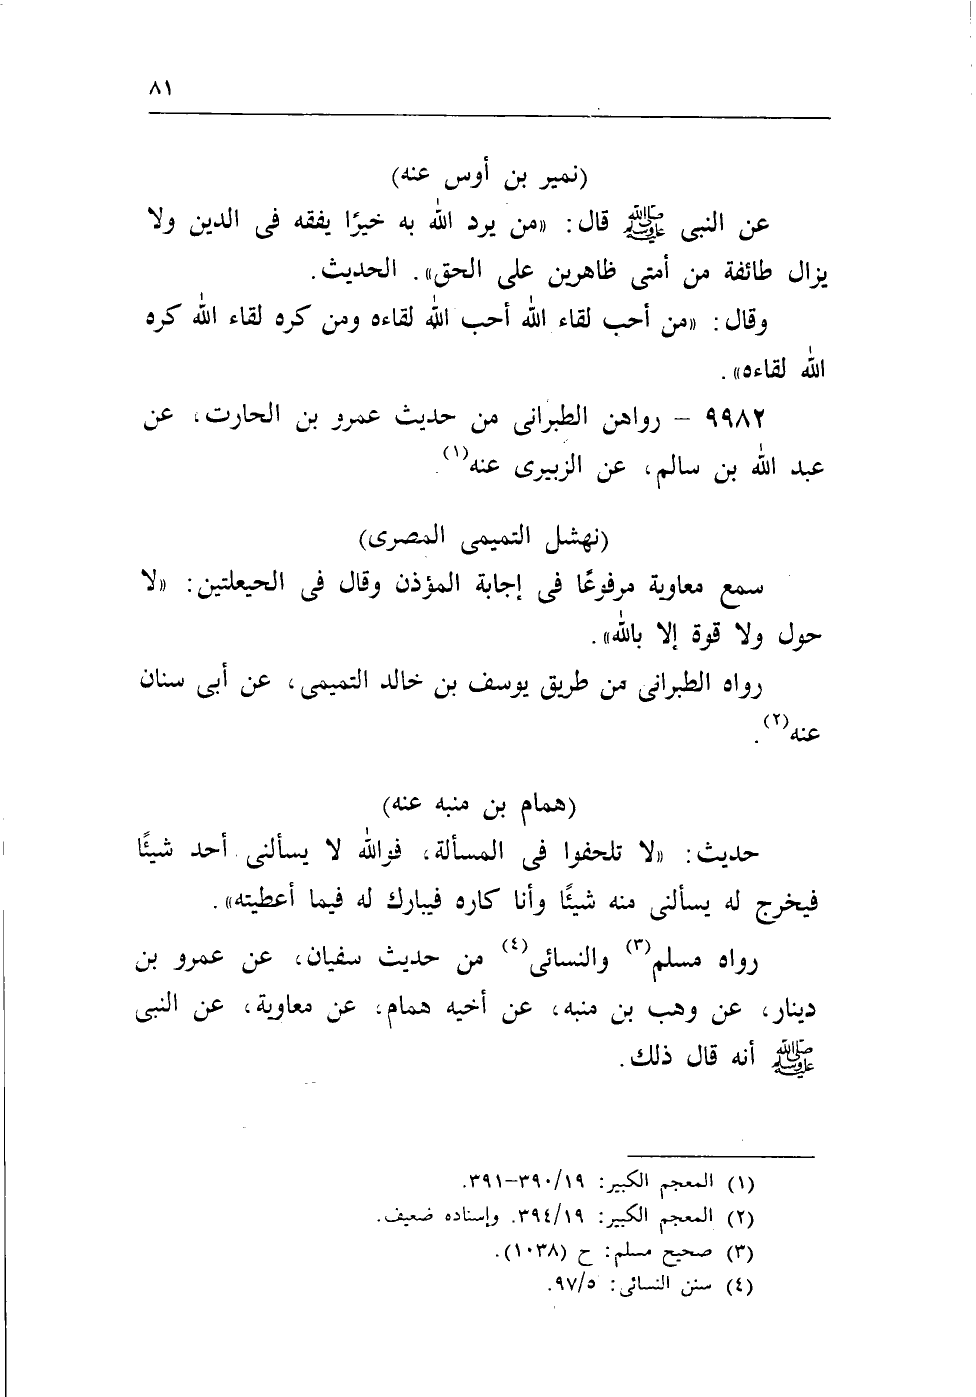 ٨١
(نمير بن أوس عنه)
عن النبى ﷺ قال: «من يرد الله به خيرًا يفقه فى الدين ولا
يزال طائفة من أمتى ظاهرين على الحق». الحديث.
وقال: «من أحب لقاء الله أحب الله لقاءه ومن كره لقاء الله كره
الله لقاءه».
٩٩٨٢ – رواهن الطبرانى من حديث عمرو بن الحارت، عن
عبد الله بن سالم، عن الزبيرى عنه(١).
(نهشل التميمى المصرى)
سمع معاوية مرفوعًا فى إجابة المؤذن وقال فى الحيعلتين: «لا
حول ولا قوة إلا بالله».
رواه الطبرانى من طريق يوسف بن خالد التميمى، عن أبى سنان
عنه(٢).
(همام بن منبه عنه)
حديث: «لا تلحفوا فى المسألة، فوالله لا يسألنى أحد شيئًا
فيخرج له يسألنى منه شيئًا وأنا كاره فيبارك له فيما أعطيته».
رواه مسلم(٣) والنسائى(٤) من حديث سفيان، عن عمرو بن
دينار، عن وهب بن منبه، عن أخيه همام، عن معاوية، عن النبى
ﷺ أنه قال ذلك.
(١) المعجم الكبير: ١٩/٣٩٠–٣٩١.
(٢) المعجم الكبير: ١٩/٣٩٤. وإسناده ضعيف.
(٣) صحيح مسلم: ح (١٠٣٨).
(٤) سنن النسائى: ٥/٩٧.